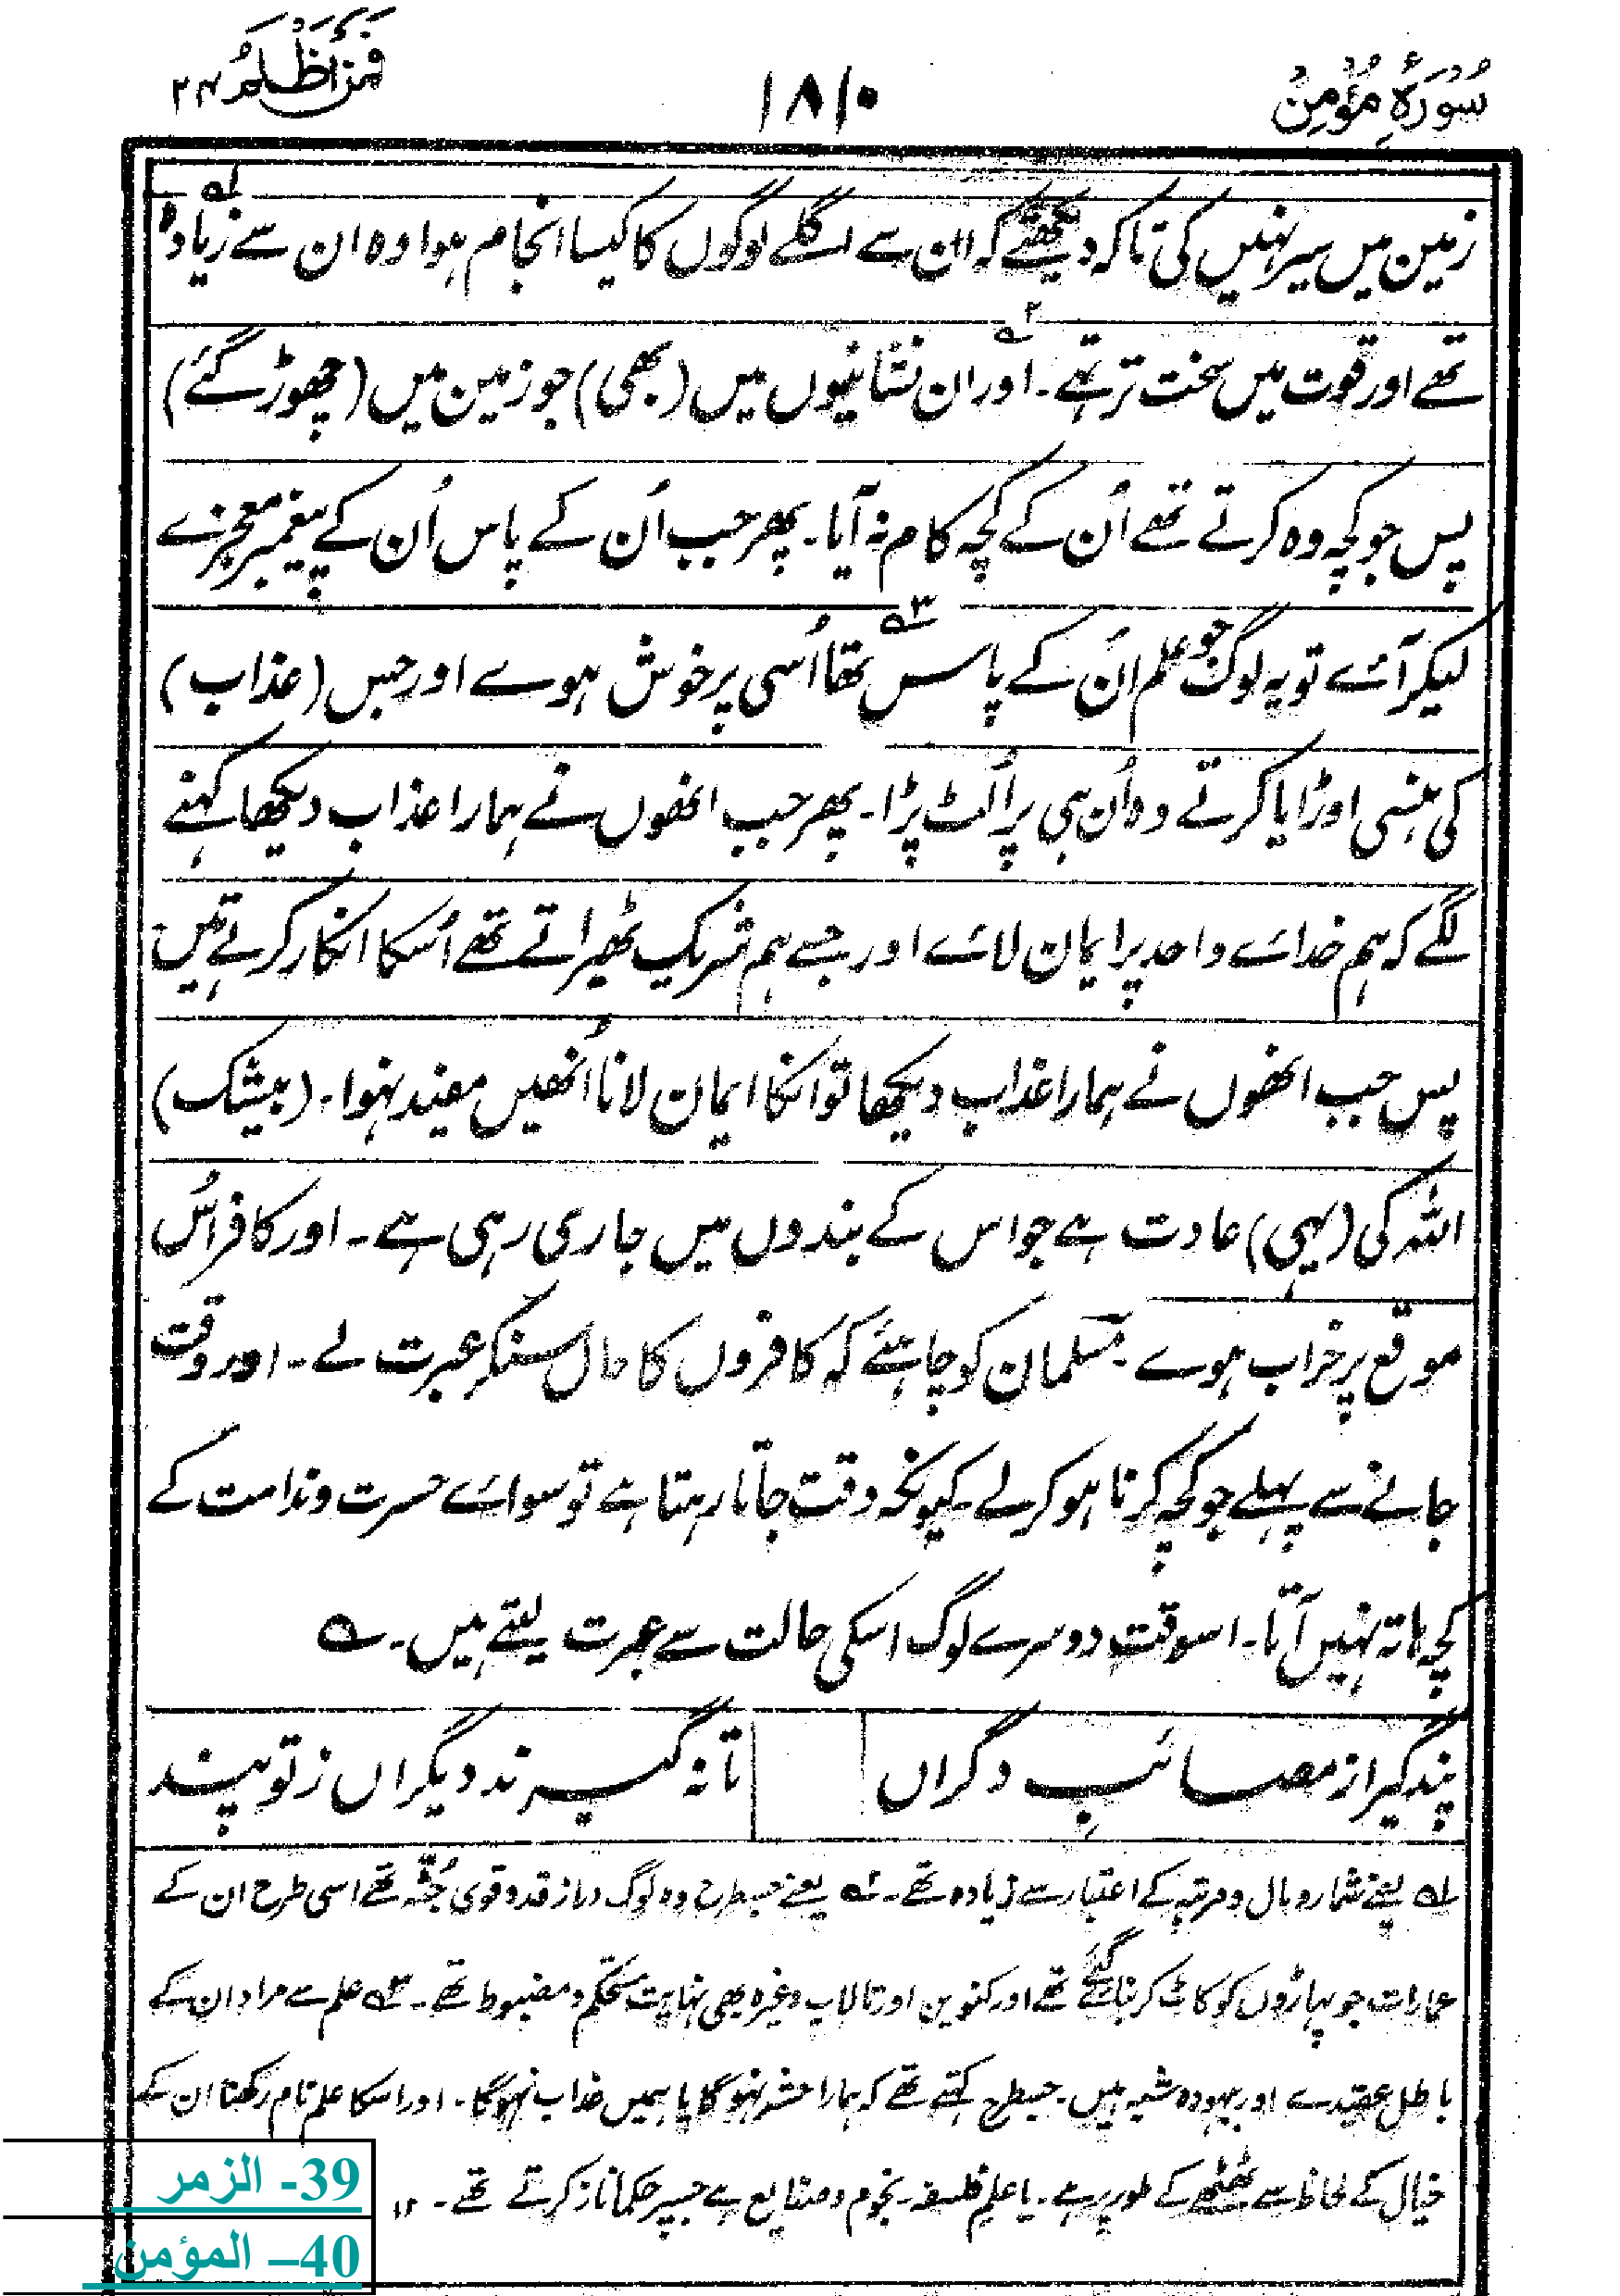 سُورَۂ مُؤْمِن
۱۸۱۰
فَمَنْ أَظْلَمُ ۲۴
زمین میں سیر نہیں کی تاکہ دیکھتے کہ ان سے اگلے لوگوں کا کیسا انجام ہوا وہ ان سے زیادہ ۱؎
تھے اور قوت میں سخت تر تھے۔ ۲؎ اور ان نشانیوں میں (بھی) جو زمین میں (چھوڑ گئے)
پس جو کچہ وہ کرتے تھے اُن کے کچہ کام نہ آیا۔ پھر جب اُن کے پاس اُن کے پیغمبر معجزے
لیکر آئے تو یہ لوگ جو علم اُن کے پاس تھا ۳؎ اُسی پر خوش ہوے اور جس (عذاب)
کی ہنسی اوڑایا کرتے وہ اُن ہی پر اُلٹ پڑا۔ پھر جب انھوں نے ہمارا عذاب دیکھا کہنے
لگے کہ ہم خدائے واحد پر ایمان لائے اور جسے ہم شریک ٹھیراتے تھے اُسکا انکار کرتے ہیں
پس جب انھوں نے ہمارا عذاب دیکھا تو انکا ایمان لانا اُنھیں مفید نہوا۔ (بیشک)
اللہ کی (یہی) عادت ہے جو اس کے بندوں میں جاری رہی ہے۔ اور کافر اُس
موقع پر خراب ہوے۔ مسلمان کو چاہئے کہ کافروں کا حال سنکر عبرت لے۔ اور وقت
جانے سے پہلے جو کچہ کرنا ہو کرلے۔ کیونکہ وقت جاتا رہتا ہے تو سوائے حسرت و ندامت کے
کچہ ہاتہ نہیں آتا۔ اسوقت دوسرے لوگ اسکی حالت سے عبرت لیتے ہیں۔ ؎
پند گیر از مصائبِ دگراں تا نہ گیرند دیگراں ز تو پند
۱؎ یعنے شمار و مال و مرتبہ کے اعتبار سے زیادہ تھے۔ ۲؎ یعنے جسطرح وہ لوگ دراز قد و قوی جُثّہ تھے اسی طرح ان کے
عمارات جو پہاڑوں کو کاٹ کر بنائے گئے تھے اور کنویں اور تالاب وغیرہ بھی نہایت مستحکم و مضبوط تھے۔ ۳؎ علم سے مراد ان کے
باطل عقیدے اور بیہودہ شبہ ہیں۔ جسطرح کہتے تھے کہ ہمارا حشر نہوگا یا ہمیں عذاب نہوگا۔ اور اسکا علم نام رکھنا ان کے
خیال کے لحاظ سے ٹھٹھے کے طور پر ہے۔ یا علم فلسفہ۔ نجوم و صنایع ہے جسپر حکما ناز کرتے تھے۔ ۱۲
39- الزمر
40– المؤمن